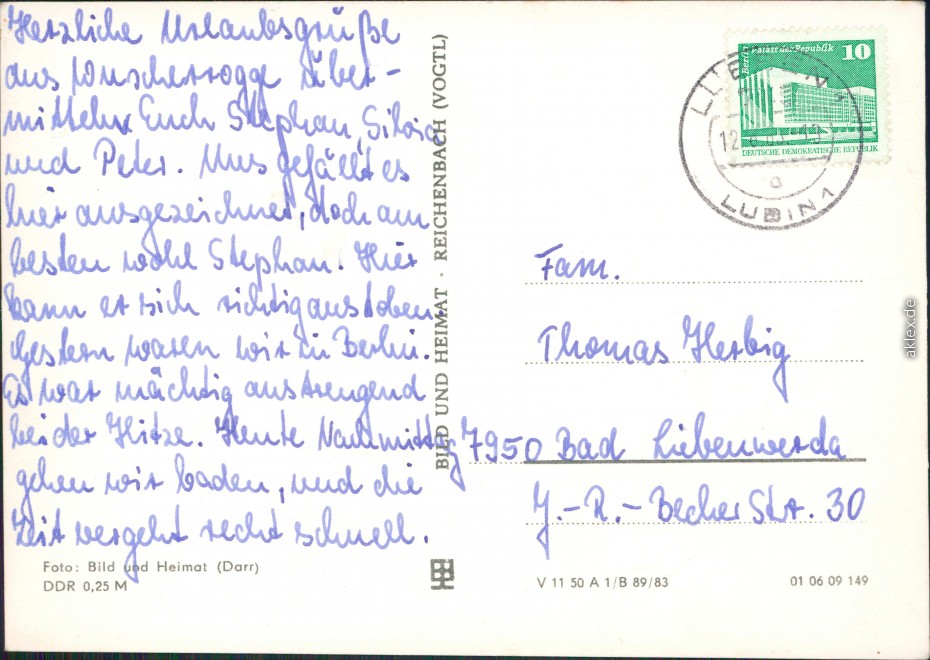 Herzliche Urlaubsgrüße
aus Wuscherrogge über-
mitteln Euch Stephan, Silvia
und Peter. Uns gefällt es
hier ausgezeichnet, doch am
besten wohl Stephan. Hier
kann er sich richtig austoben.
Gestern waren wir in Berlin.
Es war mächtig anstrengend
bei der Hitze. Heute Nachmittag
gehen wir baden, und die
Zeit vergeht recht schnell.
Foto: Bild und Heimat (Darr)
DDR 0,25 M
BILD UND HEIMAT · REICHENBACH (VOGTL)
Berlin Palast der Republik 10
DEUTSCHE DEMOKRATISCHE REPUBLIK
LUBIN 1
a
Fam.
Thomas Herbig
7950 Bad Liebenwerda
J.-R.-Becher Str. 30
V 11 50 A 1/B 89/83
01 06 09 149
aklex.de